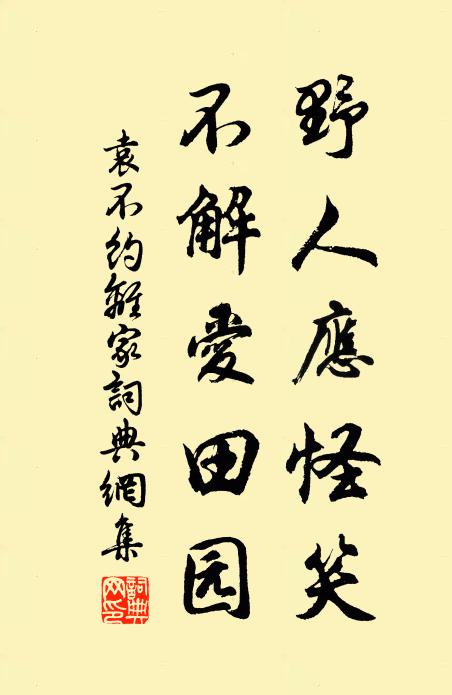 野人應怪笑
不解愛田园
袁不约離家詞典網集
詞典网印